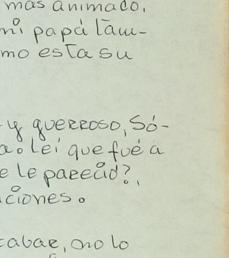 mas animado.
mi papá tam-
mo esta su
y guerroso, Só-
a. Leí que fué a
e le pareció?,
ciones.
cabar, ono lo